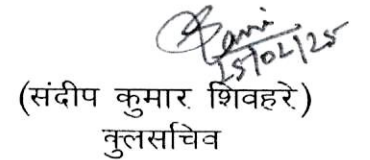 15/02/25
(संदीप कुमार शिवहरे)
कुलसचिव